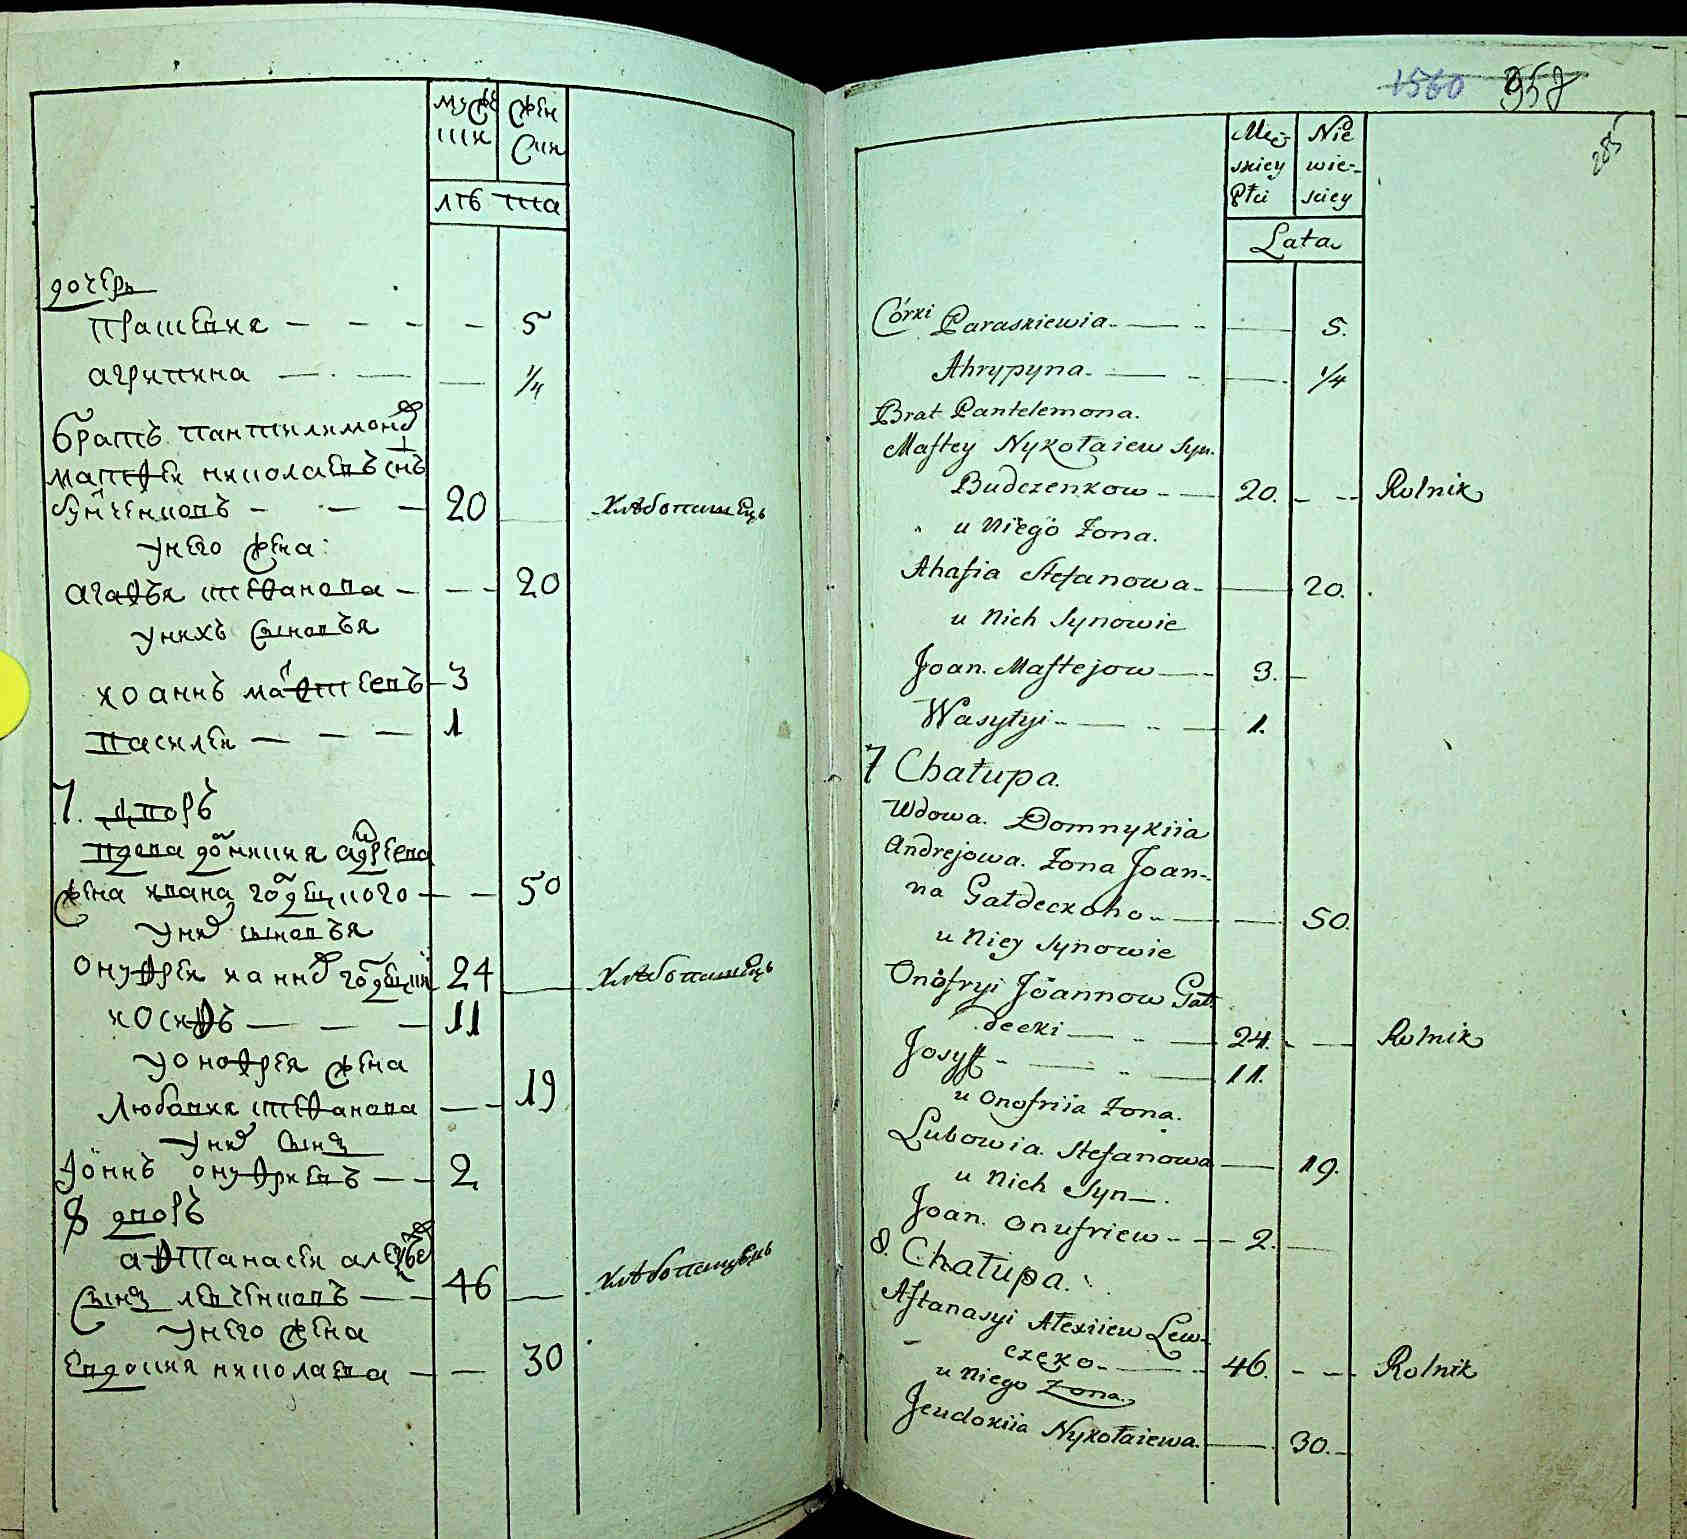 муже жен
ши ски
лѣ та
дочерь
прасевия — — — — 5
агрипина — — — 1/4
братъ пантилимонов
матфеи николаевъ снъ
бунченковъ — — — 20 — хлѣбопашецъ
у него жена:
агафѣя стефанова — — — 20
у нихъ сыновѣя
иоаннъ матфеевъ — 3
василеи — — — 1
7. дворъ
вдова домникия андреева
жена ивана годецкого — — 50
у ней сыновѣя
онуфреи ианнов годецкий 24 — хлѣбопашецъ
иосифъ — — — 11
у онофрея жена
любовия стефанова — — 19
у них сынъ
іоннъ онуфриевъ — — 2
8 дворъ
афтанасеи алексѣев
сынъ левченковъ — — 46 — хлѣбопашецъ
у него жена
евдокия николаева — — 30
1560 957
285
Męz- Nie
skiey wie-
Płci sciey
Lata
Córki Paraskiewia. — — 5.
Ahrypyna. — — 1/4
Brat Pantelemona.
Maftey Nykołaiew Syn.
Budczenkow — 20. — — Rolnik
u Niego Żona.
Ahafia Stefanowa — — 20.
u Nich Synowie
Joan. Maftejow — 3. —
Wasyłyi — — 1.
7 Chałupa.
Wdowa. Domnykiia
Andrejowa. Żona Joan-
na Gałdeckoho — — 50.
u Niey Synowie
Onofryi Joannow Gał-
decki — — 24. — — Rolnik
Josyf — — 11.
u Onofriia Żona.
Lubowia. Stefanowa — 19.
u Nich Syn —.
Joan. Onufriew — — 2. —
8. Chałupa.
Aftanasyi Alexiiew Lew-
częko — 46. — — Rolnik
u Niego Żona.
Jeudokiia Nykołaiewa. — 30. —